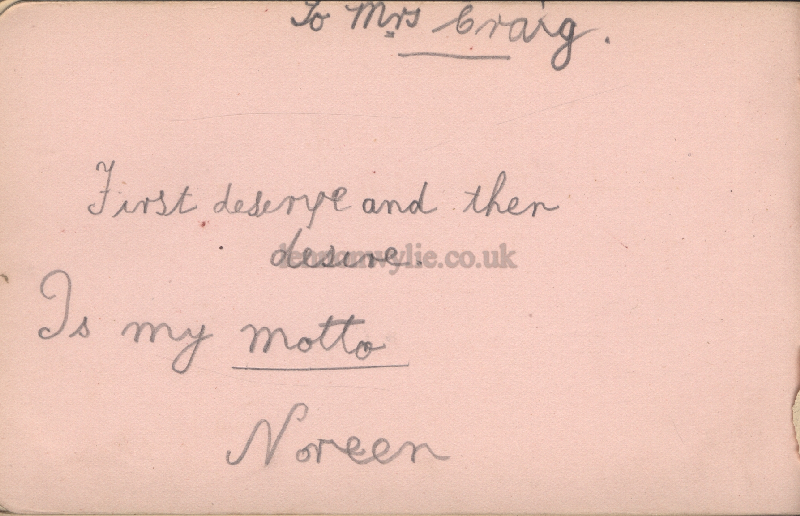 To Mrs Craig.
First deserve and then
desire.
Is my motto
Noreen